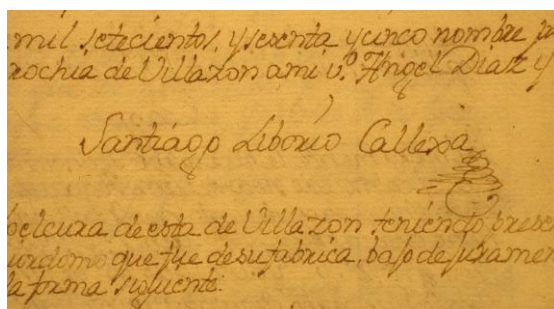 mil, setecientos, y sesenta y cinco nombre
rochia de Villazon a mi vº. Angel Diaz y
Santiago Liborio Callexa
el cura de esta de Villazon teniendo presen
iordomo que fue de su fabrica, bajo de juramen
la forma siguiente.